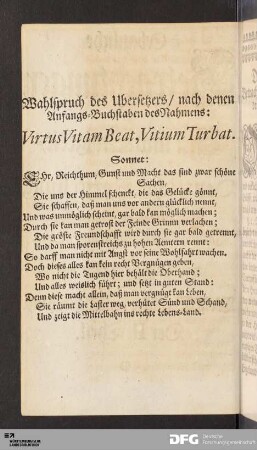 Wahlspruch des Ubersetzers/ nach denen
Anfangs-Buchstaben des Nahmens:
Virtus Vitam Beat, Vitium Turbat.
Sonnet:
Ehr, Reichthum, Gunst und Macht das sind zwar schöne
Sachen,
Die uns der Himmel schenckt, die das Gelücke gönnt,
Sie schaffen, daß man uns vor andern glücklich nennt,
Und was unmöglich scheint, gar bald kan möglich machen;
Durch sie kan man getrost der Feinde Grimm verlachen;
Die gröste Freundschafft wird durch sie gar bald getrennt,
Und da man sporenstreichs zu hohen Aemtern rennt:
So darff man nicht mit Angst vor seine Wohlfahrt wachen.
Doch dieses alles kan kein recht Vergnügen geben,
Wo nicht die Tugend hier behält die Oberhand;
Und alles weislich führt; und setzt in guten Stand:
Denn diese macht allein, daß man vergnügt kan leben,
Sie räumt die Laster weg, verhütet Sünd und Schand,
Und zeigt die Mittelbahn ins rechte Lebens-Land.
DFG
Deutsche
Forschungsgemeinschaft